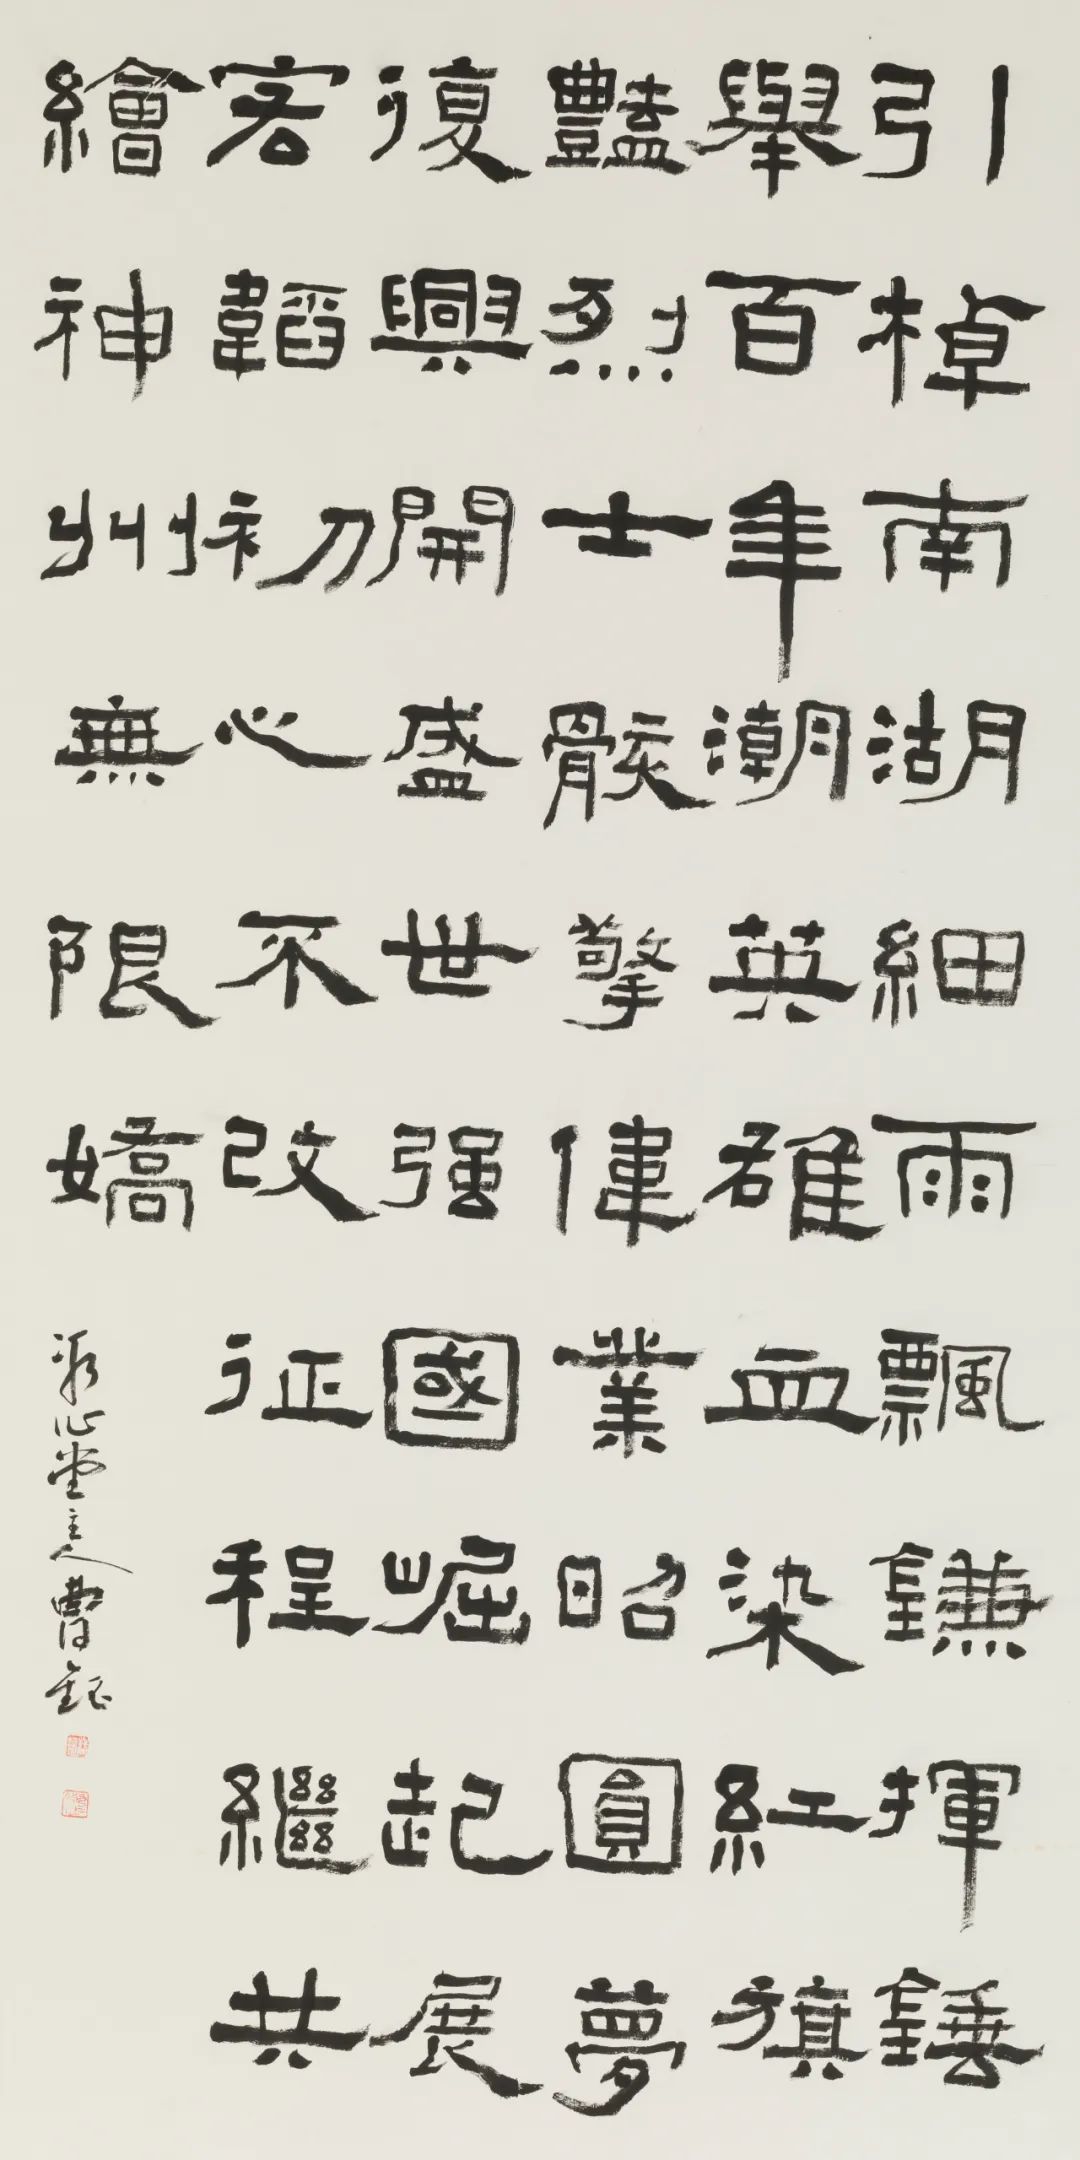 引棹南湖細雨飄鐮揮錘
舉百年潮英雄血染紅旗
豔烈士骸擎偉業昭圓夢
復興開盛世强國崛起展
宏韜初心不改征程繼共
繪神州無限嬌
心堂主人曹